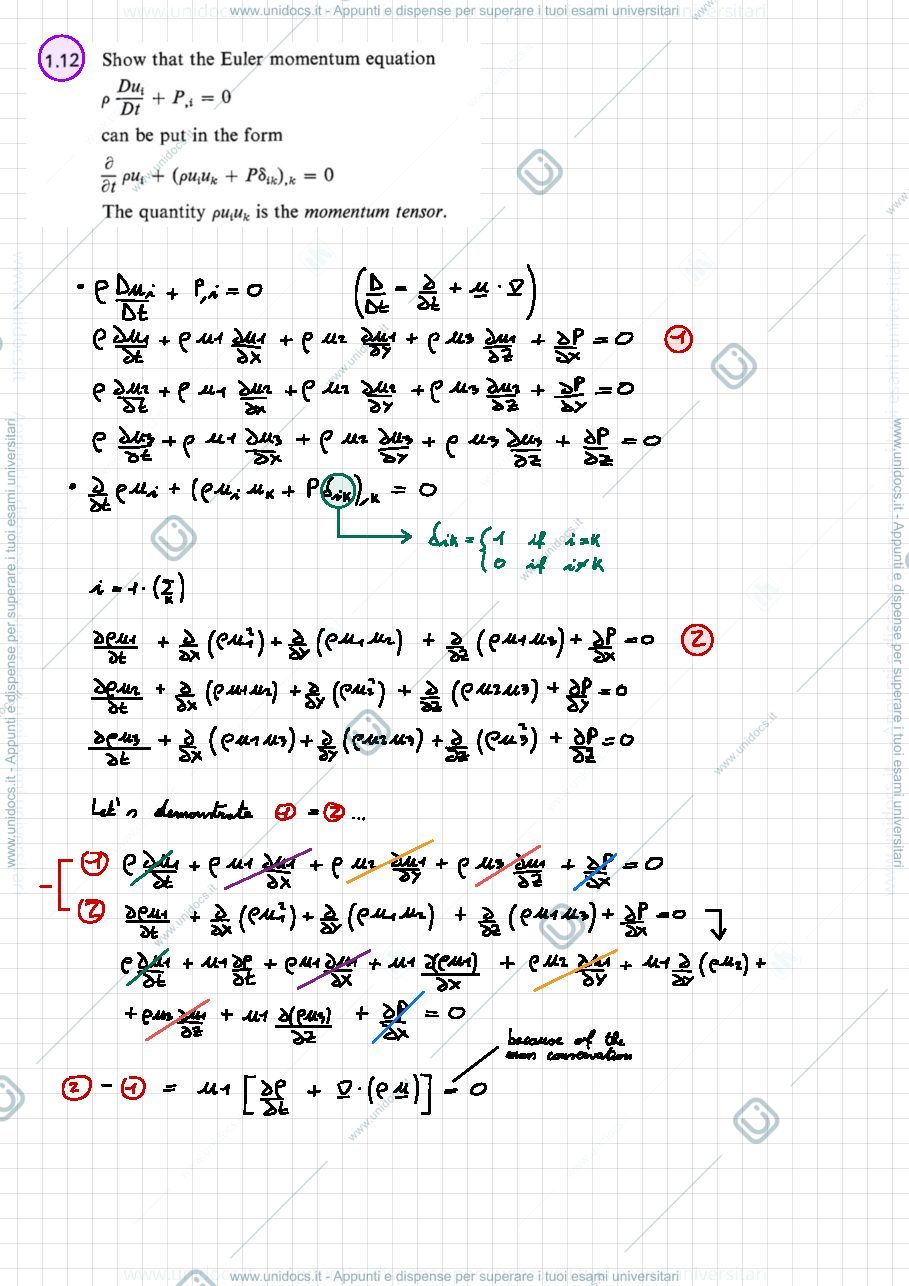 www.unidocs.it - Appunti e dispense per superare i tuoi esami universitari
1.12 Show that the Euler momentum equation
ρ Du_i/Dt + P,_i = 0
can be put in the form
∂/∂t ρu_i + (ρu_i u_k + Pδ_ik),_k = 0
The quantity ρu_i u_k is the momentum tensor.
• ρ Du_i/Dt + P,_i = 0 (D/Dt = ∂/∂t + u · ∇)
ρ ∂u1/∂t + ρ u1 ∂u1/∂x + ρ u2 ∂u1/∂y + ρ u3 ∂u1/∂z + ∂P/∂x = 0 1
ρ ∂u2/∂t + ρ u1 ∂u2/∂x + ρ u2 ∂u2/∂y + ρ u3 ∂u2/∂z + ∂P/∂y = 0
ρ ∂u3/∂t + ρ u1 ∂u3/∂x + ρ u2 ∂u3/∂y + ρ u3 ∂u3/∂z + ∂P/∂z = 0
• ∂/∂t ρu_i + (ρu_i u_k + Pδ_ik),_k = 0
δ_ik = { 1 if i=k
0 if i≠k
i = 1 · (Σ_k)
∂ρu1/∂t + ∂/∂x (ρu1²) + ∂/∂y (ρu1u2) + ∂/∂z (ρu1u3) + ∂P/∂x = 0 2
∂ρu2/∂t + ∂/∂x (ρu1u2) + ∂/∂y (ρu2²) + ∂/∂z (ρu2u3) + ∂P/∂y = 0
∂ρu3/∂t + ∂/∂x (ρu1u3) + ∂/∂y (ρu2u3) + ∂/∂z (ρu3²) + ∂P/∂z = 0
Let's demonstrate 1 = 2 ...
1 ρ ∂u1/∂t + ρ u1 ∂u1/∂x + ρ u2 ∂u1/∂y + ρ u3 ∂u1/∂z + ∂P/∂x = 0
-
2 ∂ρu1/∂t + ∂/∂x (ρu1²) + ∂/∂y (ρu1u2) + ∂/∂z (ρu1u3) + ∂P/∂x = 0
ρ ∂u1/∂t + u1 ∂ρ/∂t + ρu1 ∂u1/∂x + u1 ∂(ρu1)/∂x + ρu2 ∂u1/∂y + u1 ∂/∂y (ρu2) +
+ ρu3 ∂u1/∂z + u1 ∂(ρu3)/∂z + ∂P/∂x = 0
because of the
mass conservation
2 - 1 = u1 [∂ρ/∂t + ∇·(ρu)] = 0
www.unidocs.it - Appunti e dispense per superare i tuoi esami universitari
www.unidocs.it - Appunti e dispense per superare i tuoi esami universitari
www.unidocs.it - Appunti e dispense per superare i tuoi esami universitari